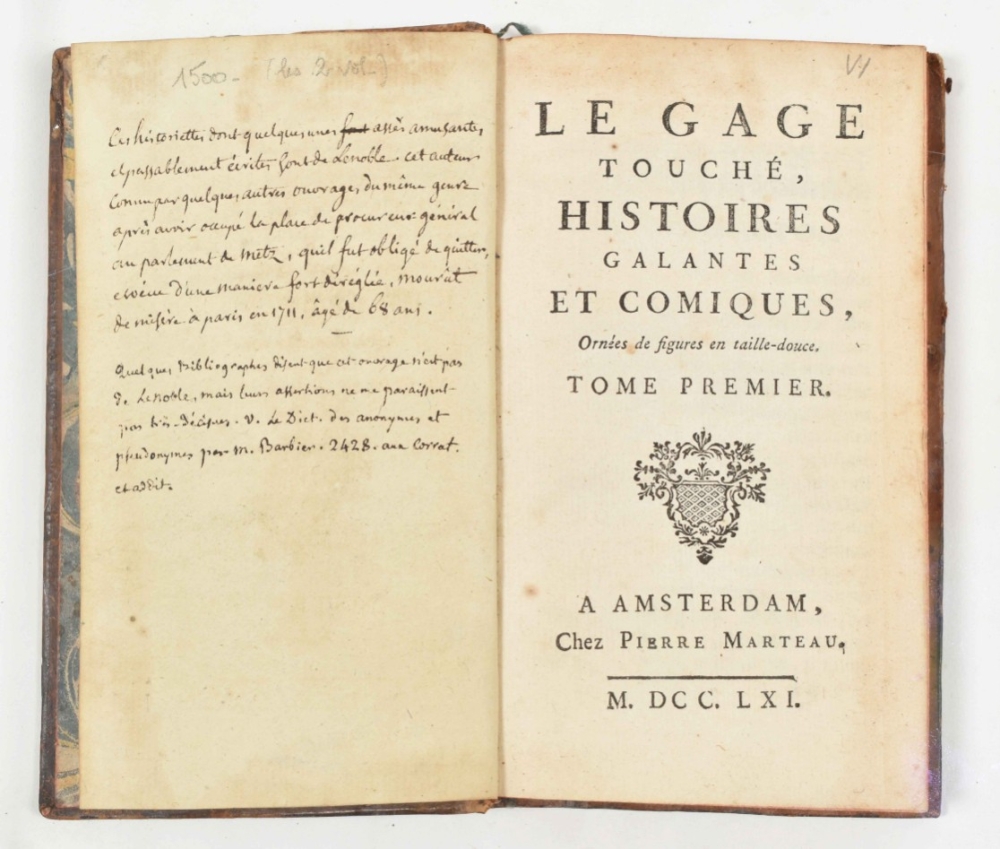 1500 - (les 2 vol.)
Ces historiettes dont quelques unes fort assés amusantes,
et passablement écrites sont de Lenoble. cet auteur
connu par quelques autres ouvrages du même genre
après avoir occupé la place de procureur général
au parlement de Metz, qu'il fut obligé de quitter,
et vécu d'une maniere fort déréglée, mourût
de misère à paris en 1711, âgé de 68 ans.
Quelques Bibliographes disent que cet ouvrage n'est pas
d. Lenoble, mais leurs assertions ne me paraissent
pas très-décisives. v. Le Dict. des anonymes et
pseudonymes par m. Barbier. 2428. aux Corrat.
et addit.
VI
LE GAGE
TOUCHÉ,
HISTOIRES
GALANTES
ET COMIQUES,
Ornées de figures en taille-douce.
TOME PREMIER.
A AMSTERDAM,
Chez PIERRE MARTEAU.
M. DCC. LXI.